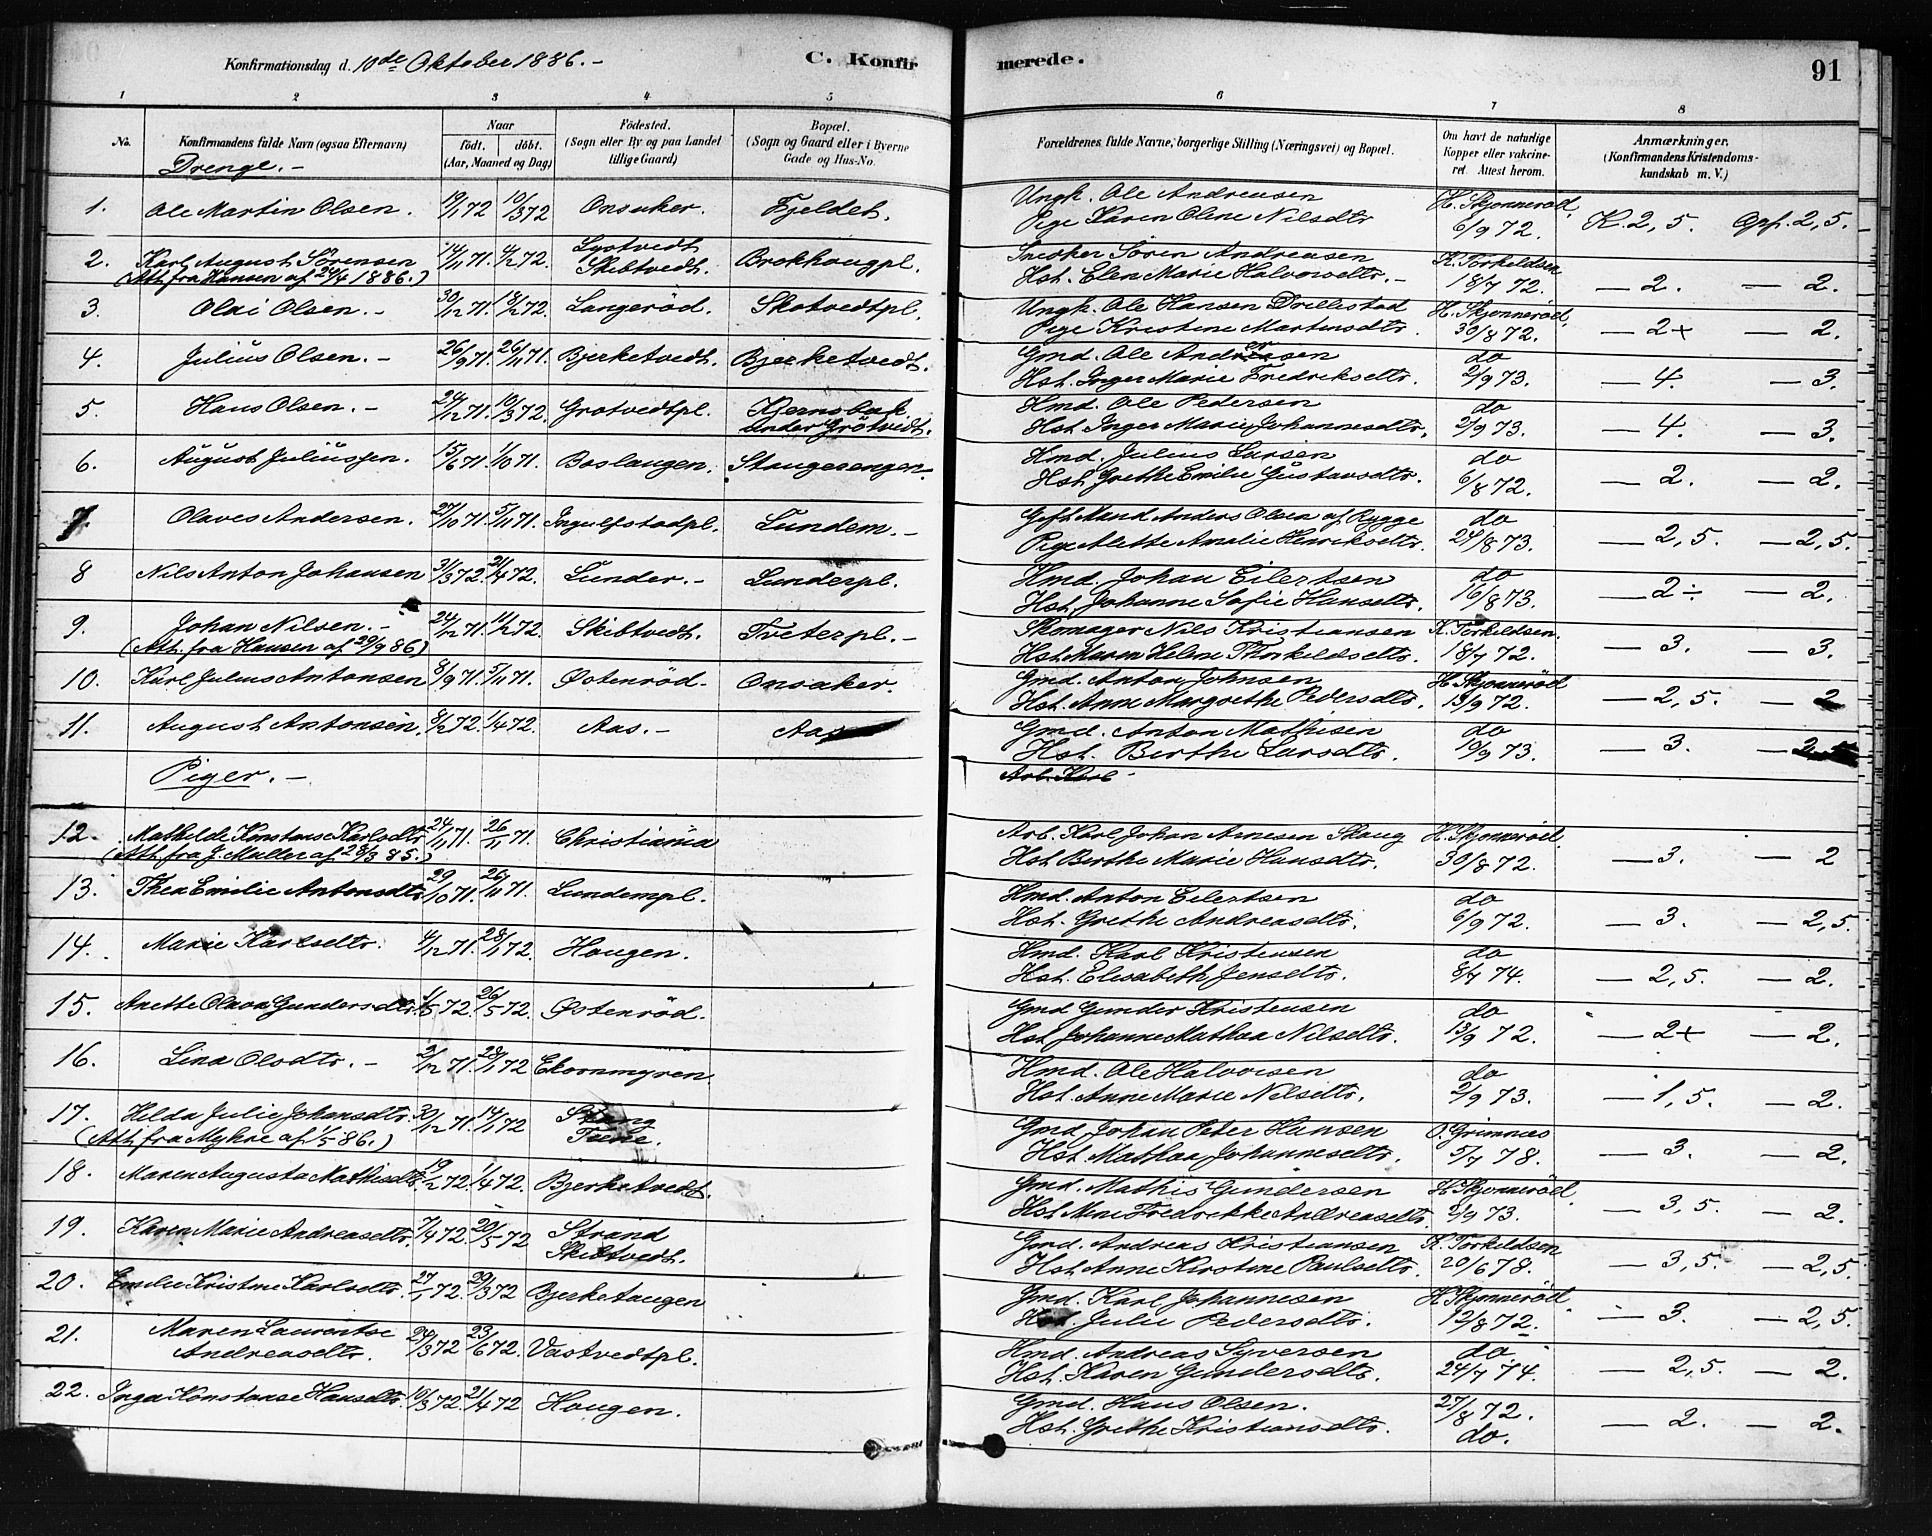 Konfirmationsdag d. 10de Oktober 1886. –
C. Konfirmerede.
91
1 2 3 4 5 6 7 8
No.
Konfirmandens fulde Navn (ogsaa Efternavn)
Naar født. døbt. (Aar, Maaned og Dag)
Födested. (Sogn eller By og paa Landet tillige Gaard)
Bopæl. (Sogn og Gaard eller i Byerne Gade og Hus-No.
Forældrenes fulde Navne, borgerlige Stilling (Næringsvei) og Bopæl.
Om havt de naturlige Kopper eller vakcineret. Attest herom.
Anmærkninger. (Konfirmandens Kristendomskundskab m. V.)
Drenge. –
1. Ole Martin Olsen. 19/1 72 10/3 72 Onsaker. Fjeldet. Ungk. Ole Andreasen H. Skjønnerød.
Pige Karen Oline Nilsdtr 6/9 72. K. 2,5. Opf. 2,5.
2. Karl August Sörensen 14/11 71. 4/2 72. Lystvedt Skibtvedt. Brokhougpl. Snedker Sören Andreasen K. Torkeldsen
(Att. fra Hansen af 24/4 1886.) Hst. Elen Marie Halvorsdtr. – 18/7 72. — 2. — 2.
3. Olai Olsen. – 30/12 71. 18/2 72. Langeröd. Skotvedtpl. Ungk. Ole Hansen Drillestad H. Skjønnerød.
Pige Kristine Martinsdtr. 30/8 72. — 2+ — 2.
4. Julius Olsen. – 26/9 71. 26/11 71. Bjerketvedt. Bjerketvedt. Gmd. Ole Andersen do
Hst. Inger Marie Fredriksdtr. 2/9 73. — 4. — 3.
5. Hans Olsen. – 24/12 71. 10/3 72. Grotvedtpl. Kjernsbak under Grötvedt. Hmd. Ole Pedersen do
Hst. Inger Marie Johannesdtr. 2/9 73. — 4. — 3.
6. August Juliussen. 15/6 71. 1/10 71. Boslangen. Stangerengen. Hmd. Julius Larsen do
Hst. Grethe Emilie Gustavsdtr. 6/8 72. — 2. — 2.
7. Olaves Andersen. 27/10 71. 5/11 71. Ingulfstadpl. Lundem. – Gift Mand Anders Olsen af Rygge do
Pige Alette Amalie Henriksdtr. 24/8 73. — 2,5. — 2,5.
8 Nils Anton Johansen 31/3 72. 21/4 72. Lunder. – Lunderpl. Hmd. Johan Eilertsen do
Hst. Johanne Sofie Hansdtr. 16/8 73. — 2 ÷ — 2.
9. Johan Nilsen. – 24/12 71. 11/2 72. Skibtvedt. Tveterpl. – Skomager Nils Kristiansen K. Torkeldsen.
(Att. fra Hansen af 29/9 86) Hst. Maren Helene Thorkildsdtr. 18/7 72. — 3. — 3.
10. Karl Julius Antonsen 8/9 71. 5/11 71. Østenröd. Onsaker. Gmd. Anton Johnsen H. Skjønnerød
Hst. Anne Margrethe Pedersdtr. 13/9 72. — 2,5. — 2
11. August Antonsen. 8/2 72. 1/4 72. Aas. – Aas Gmd. Anton Mathisen do
Hst. Berthe Larsdtr. 10/9 73. — 3. — 2,5
Piger. –
Arb. Karl –
12. Mathilde Konstanse Karlsdtr. 24/11 71. 26/11 71. Christiania Arb. Karl Johan Arnesen Skaug H. Skjønnerød.
(Att. fra J. Muller af 28/3 85.) Hst. Berthe Marie Hansdtr. 30/8 72. — 3. — 2
13. Thea Emilie Antonsdtr. 29/10 71. 26/11 71. Lundempl. Hmd. Anton Eilertsen do
Hst. Grethe Andreasdtr. 6/9 72. — 3. — 2,5.
14. Marie Karlsdtr. 4/12 71. 28/1 72. Hougen. Hmd. Karl Kristensen do
Hst. Elisabeth Jensdtr. 8/7 74. — 2,5. — 2.
15. Anette Olava Gundersdtr. 1/5 72. 26/5 72. Østenröd. Gmd Gunder Kristensen do
Hst. Johanne Mathea Nilsdtr. 13/9 72. — 2+ — 2.
16. Lina Olsdtr. – 2/12 71. 28/1 72 Ekornmyren Hmd. Ole Halvorsen do
Hst. Anne Marie Nilsdtr. 2/9 73. — 1,5. — 2.
17. Hilda Julie Johansdtr. 30/12 71. 14/1 72 Trene. Gmd. Johan Peter Hansen O. Grimnæs
(Att. fra Myhre af 1/5 86.) Hst. Mathea Johannesdtr. 5/7 78. — 3. — 2.
18. Maren Augusta Mathisdtr. 19/2 72. 1/4 72. Bjerketvedt. Gmd. Mathis Gundersen H. Skjønnerød.
Hst. Mine Fredrikke Andreasdtr. 2/9 73. — 3,5. — 2.
19. Karen Marie Andreasdtr. 7/4 72. 20/5 72 Strand Skibtvedt. Gmd. Andreas Kristiansen K. Torkeldsen
Hst. Anne Kirstine Paulsdtr. 20/6 78. — 3,5. — 2,5.
20. Emilie Kristine Karlsdtr. 27/1 72. 29/3 72 Bjerketangen Gmd. Karl Johannesen H. Skjønnerød
Hst. Julie Pedersdtr. 12/8 72. — 3. — 2,5.
21. Maren Laurentse Andreasdtr. 24/3 72 23/6 72. Vastvedtpl. Hmd. Andreas Syversen do
Hst. Karen Gundersdtr. 24/7 74. — 2,5. — 2.
22. Inga Konstanse Hansdtr. 10/3 72. 21/4 72 Hougen. Gmd. Hans Olsen. 27/8 72.
Hst. Grethe Kristiansdtr. do. — 2. — 2.